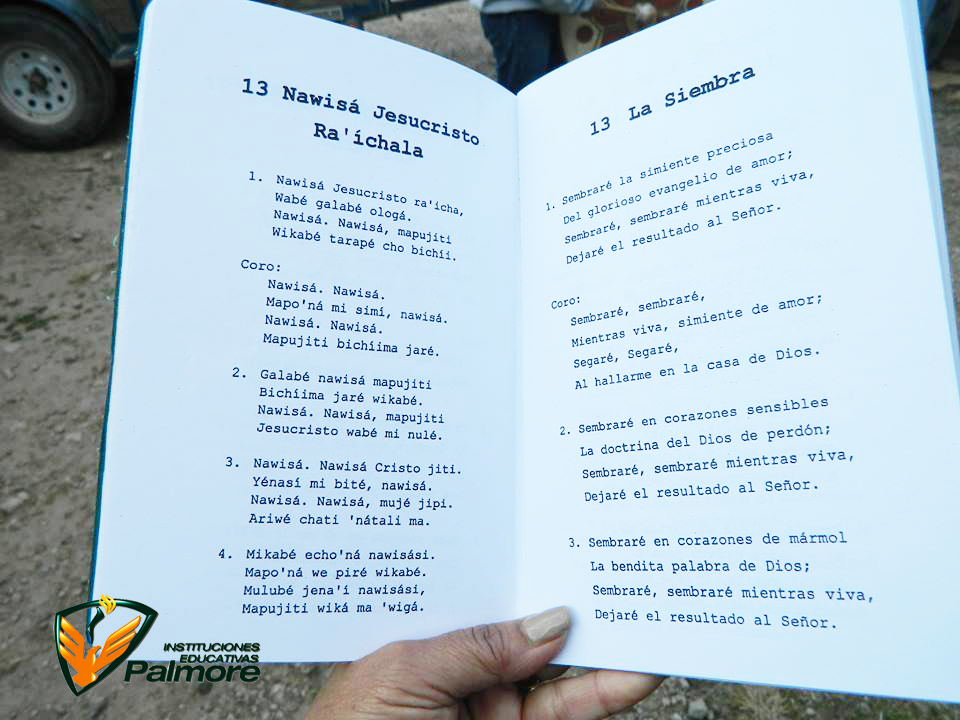 13 Nawisá Jesucristo
Ra'íchala
1. Nawisá Jesucristo ra'ícha,
Wabé galabé ologá.
Nawisá. Nawisá, mapujíti
Wikabé tarapé cho bichíi.
Coro:
Nawisá. Nawisá.
Mapo'ná mi simí, nawisá.
Nawisá. Nawisá.
Mapujiti bichíima jaré.
2. Galabé nawisá mapujiti
Bichíima jaré wikabé.
Nawisá. Nawisá, mapujiti
Jesucristo wabé mi nulé.
3. Nawisá. Nawisá Cristo jiti.
Yénasí mi bité, nawisá.
Nawisá. Nawisá, mujé jipi.
Ariwé chati 'nátali ma.
4. Mikabé echo'ná nawisási.
Mapo'ná we piré wikabé.
Mulubé jena'í nawisási,
Mapujiti wiká ma 'wigá.
13 La Siembra
1. Sembraré la simiente preciosa
Del glorioso evangelio de amor;
Sembraré, sembraré mientras viva,
Dejaré el resultado al Señor.
Coro:
Sembraré, sembraré,
Mientras viva, simiente de amor;
Segaré, Segaré,
Al hallarme en la casa de Dios.
2. Sembraré en corazones sensibles
La doctrina del Dios de perdón;
Sembraré, sembraré mientras viva,
Dejaré el resultado al Señor.
3. Sembraré en corazones de mármol
La bendita palabra de Dios;
Sembraré, sembraré mientras viva,
Dejaré el resultado al Señor.
INSTITUCIONES
EDUCATIVAS
Palmore